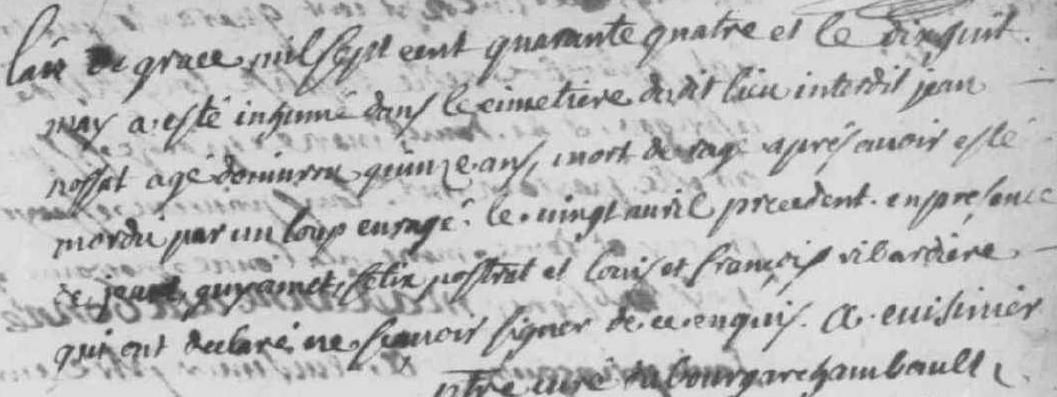 lan de grace mil sept cent quarante quatre et le dixhuit
may a esté inhumé dans le cimetiere dudit lieu interdit jean
possat agé denviron quinze ans, mort de rage aprés avoir esté
mordu par un loup enragé le vingt avril precedent. en presence
de jean guyamet, felix possat et louis et françois vilardiere
qui ont declaré ne sçavoir signer de ce enquis. A. cuisinier
ptre curé du bourgarchambault